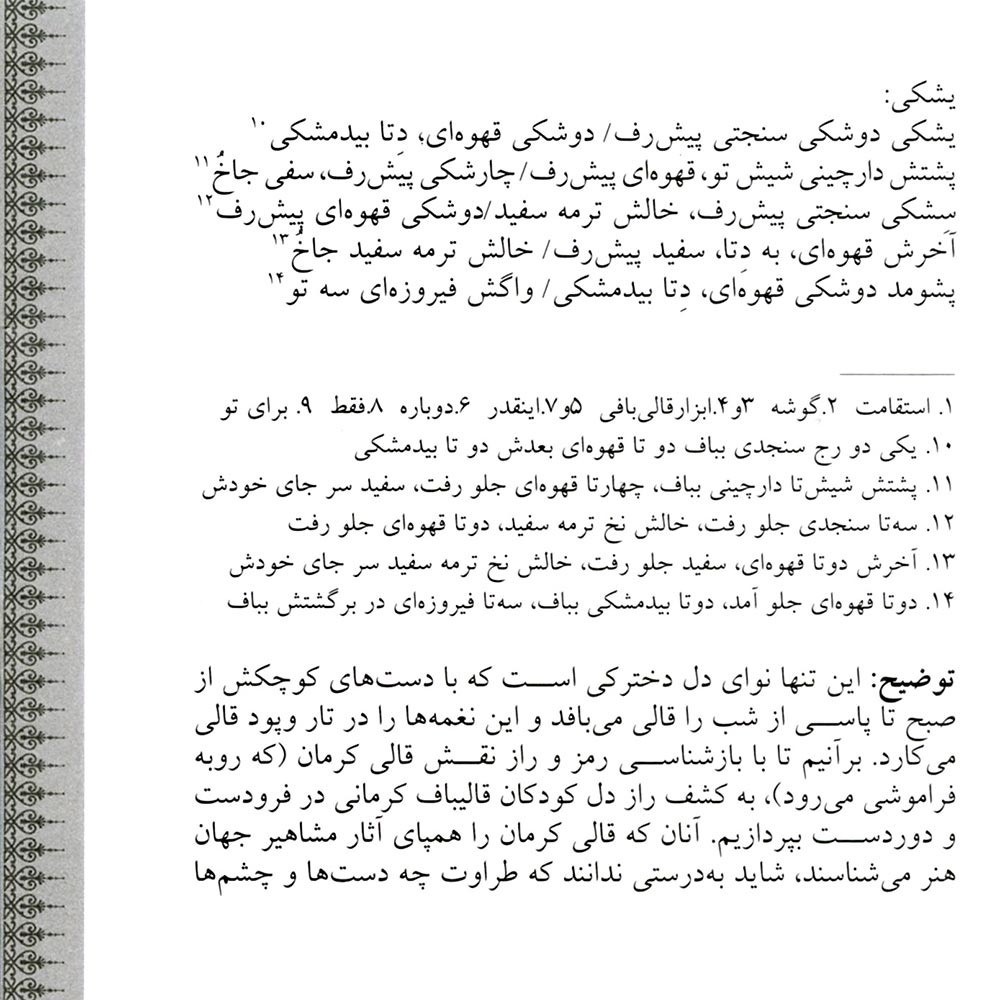 یشکی:
یشکی دوشکی سنجتی پیش‌رف/ دوشکی قهوه‌ای؛ دِتا بیدمشکی۱۰
پشتش دارچینی شیش تو، قهوه‌ای پیش‌رف/ چارشکی پیش‌رف، سفی جاخُ۱۱
سِشکی سنجتی پیش‌رف، خالش ترمه سفید/دوشکی قهوه‌ای پیش‌رف۱۲
آخرش قهوه‌ای، به دِتا، سفید پیش‌رف/ خالش ترمه سفید جاخُ۱۳
پشومد دوشکی قهوه‌ای، دِتا بیدمشکی/ واگش فیروزه‌ای سه تو۱۴
۱. استقامت ۲.گوشه ۳و۴.ابزارقالی‌بافی ۵و۷.اینقدر ۶.دوباره ۸.فقط ۹. برای تو
۱۰. یکی دو رج سنجدی بباف دو تا قهوه‌ای بعدش دو تا بیدمشکی
۱۱. پشتش شیش‌تا دارچینی بباف، چهارتا قهوه‌ای جلو رفت، سفید سر جای خودش
۱۲. سه‌تا سنجدی جلو رفت، خالش نخ ترمه سفید، دوتا قهوه‌ای جلو رفت
۱۳. آخرش دوتا قهوه‌ای، سفید جلو رفت، خالش نخ ترمه سفید سر جای خودش
۱۴. دوتا قهوه‌ای جلو آمد، دوتا بیدمشکی بباف، سه‌تا فیروزه‌ای در برگشتش بباف
توضیح: این تنها نوای دل دخترکی است که با دست‌های کوچکش از
صبح تا پاسی از شب را قالی می‌بافد و این نغمه‌ها را در تار وپود قالی
می‌کارد. برآنیم تا با بازشناسی رمز و راز نقش قالی کرمان (که روبه
فراموشی می‌رود)، به کشف راز دل کودکان قالیباف کرمانی در فرودست
و دوردست بپردازیم. آنان که قالی کرمان را همپای آثار مشاهیر جهان
هنر می‌شناسند، شاید به‌درستی ندانند که طراوت چه دست‌ها و چشم‌ها